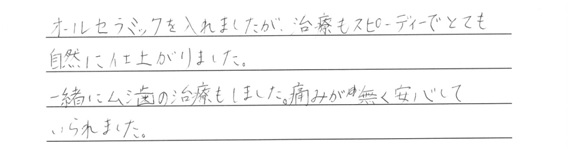 オールセラミックを入れましたが、治療もスピーディーでとても
自然に仕上がりました。
一緒にムシ歯の治療もしました。痛みが無く安心して
いられました。